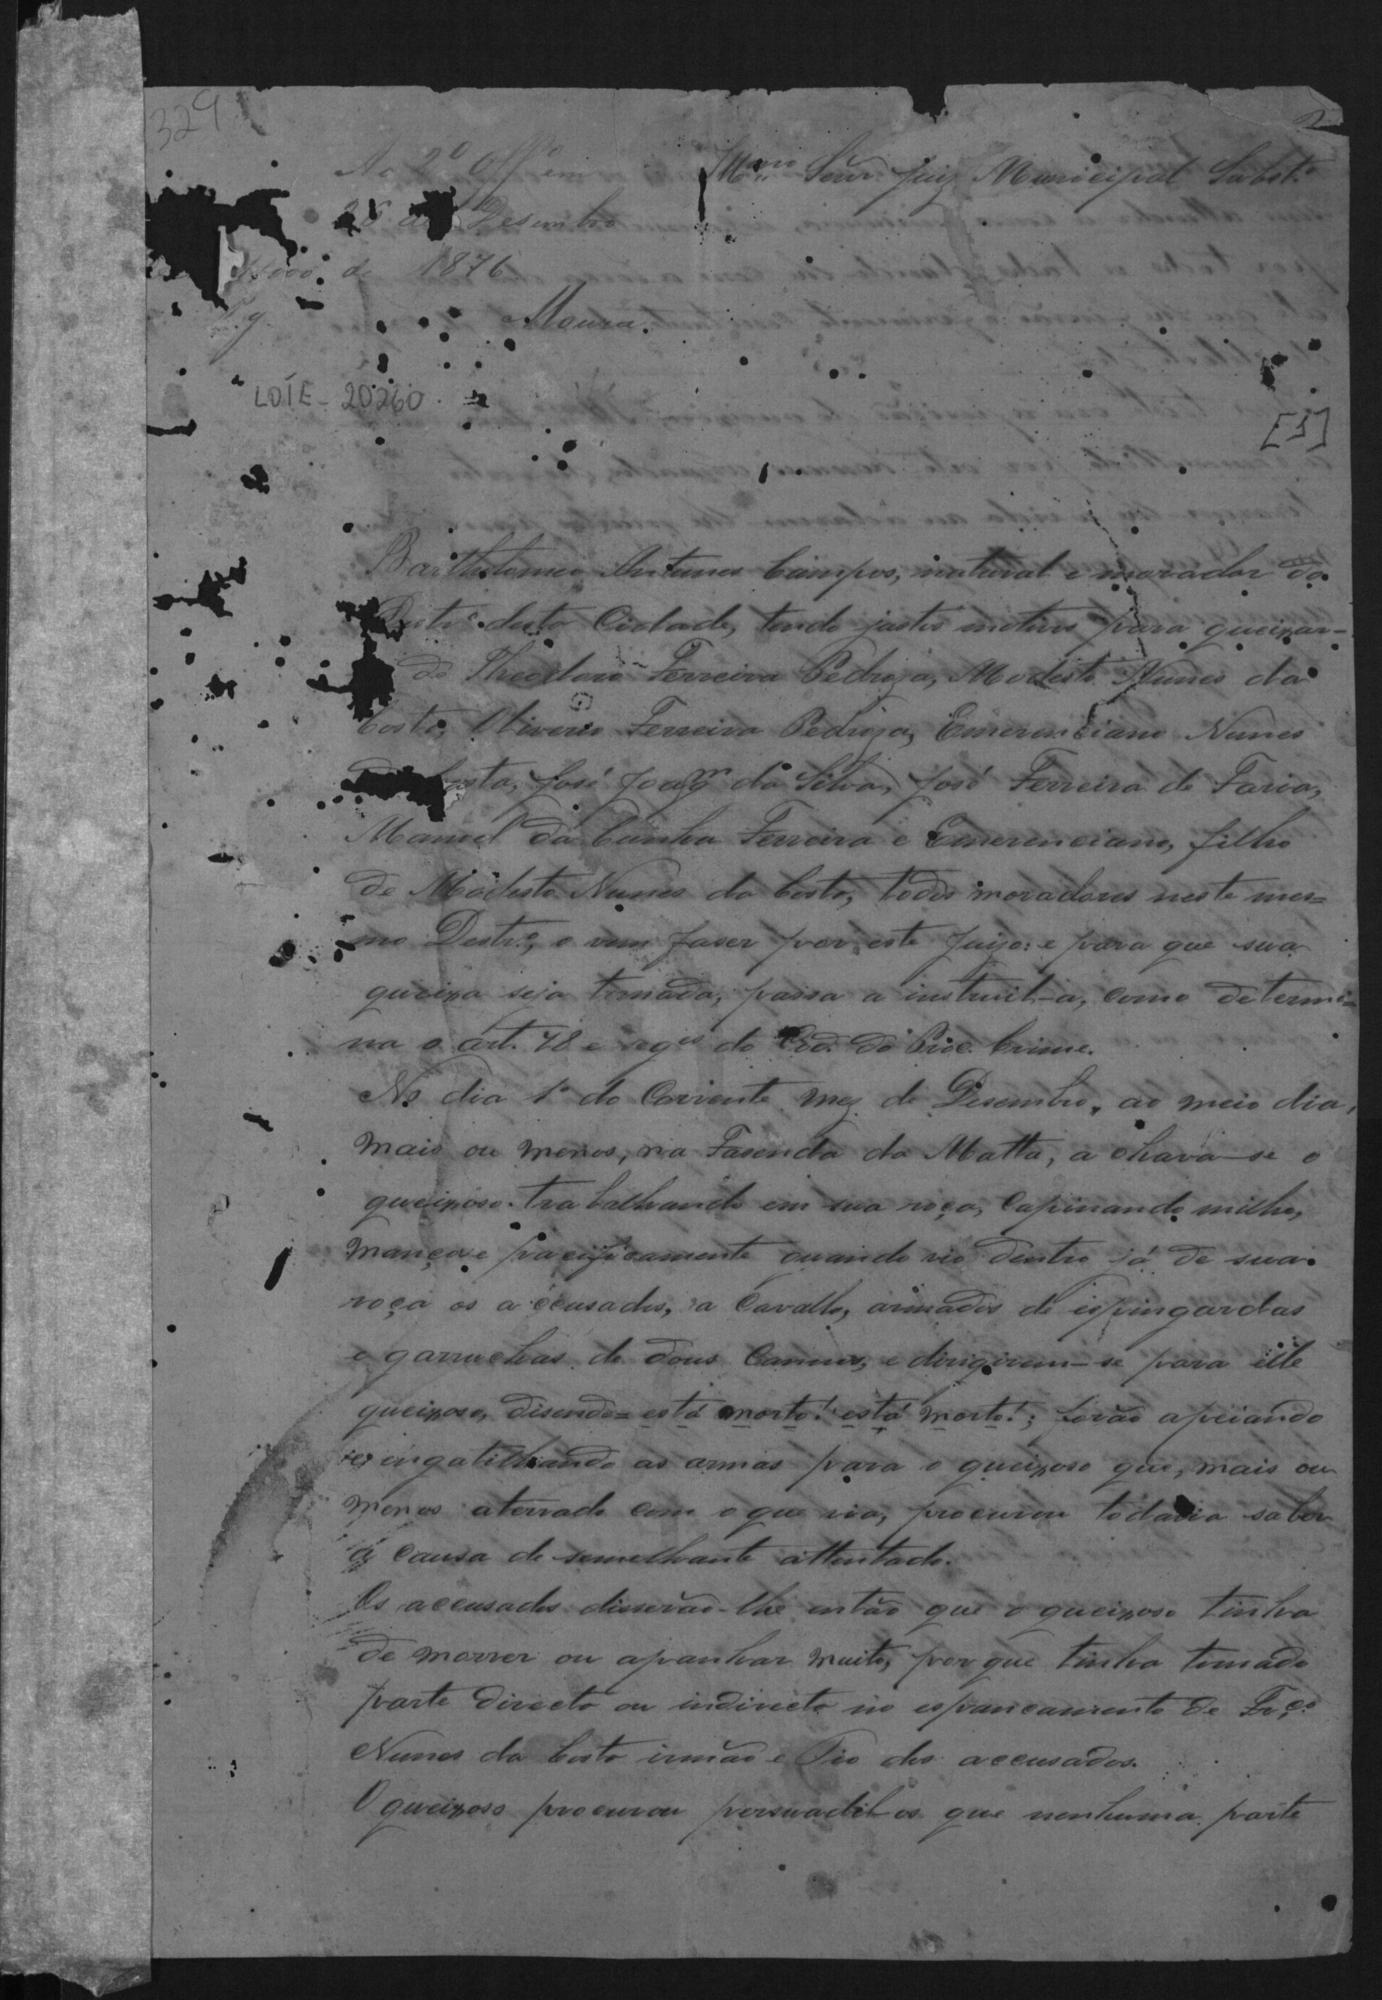 329
2
Ao 2º Offº em
Illmo Senr Juiz Municipal Substº
28 de Desembro
de 1876
Moura.
LOTE - 20260
[1]
Bartholomeu Antunes Campos, natural e morador do
Destrº desta Cidade, tendo justos motivos para queixar-
de Theodoro Ferreira Pedroza, Modesto Nunes da
Costa, Oliverio Ferreira Pedroza, Emerenciano Nunes
da Costa, José Joaqm da Silva, José Ferreira de Faria,
Manoel da Cunha Ferreira e Emerenciano, filho
de Modesto Nunes da Costa, todos moradores neste mes=
mo Destrº, o vem faser por este Juizo: e para que sua
queixa seja tomada, passa a instruil-a, como determi=
na o art. 78 e segᵉˢ do Cod. do Proc. Crime.
No dia 1º do Corrente mez de Desembro, ao meio dia,
mais ou menos, na Fasenda da Matta, achava-se o
queixoso trabalhando em sua roça, capinando milho,
mança e pacificamente quando vio dentro já de sua
roça os accusados, a Cavallo, armados de espingardas
e garruchas de dous Cannos, e dirigirem-se para elle
queixoso, disendo= está morto! está morto!; forão apeiando
e engatilhando as armas para o queixoso que, mais ou
menos aterrado com o que via, procurou todavia saber
a causa de semelhante attentado.
Os accusados disserão-lhe então que o queixoso tinha
de morrer ou apanhar muito, porque tinha tomado
parte directa ou indirecta no espancamento de Frco
Nunes da Costa irmão e Tio dos accusados.
O queixoso procurou persuadil-os que nenhuma parte